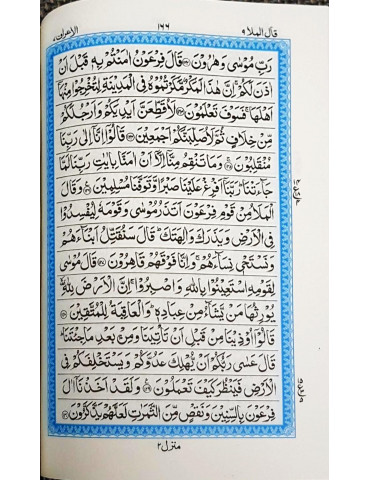 قال الملا ٩ ١٦٦ الاعراف ٧
رَبِّ مُوْسٰى وَهٰرُوْنَ ﴿١٢٢﴾ قَالَ فِرْعَوْنُ اٰمَنْتُمْ بِهٖ قَبْلَ اَنْ
اٰذَنَ لَكُمْ ۚ اِنَّ هٰذَا لَمَكْرٌ مَّكَرْتُمُوْهُ فِى الْمَدِيْنَةِ لِتُخْرِجُوْا مِنْهَاۤ
اَهْلَهَا ۚ فَسَوْفَ تَعْلَمُوْنَ ﴿١٢٣﴾ لَاُقَطِّعَنَّ اَيْدِيَكُمْ وَاَرْجُلَكُمْ
مِّنْ خِلَافٍ ثُمَّ لَاُصَلِّبَنَّكُمْ اَجْمَعِيْنَ ﴿١٢٤﴾ قَالُوْۤا اِنَّاۤ اِلٰى رَبِّنَا
مُنْقَلِبُوْنَ ﴿١٢٥﴾ وَمَا تَنْقِمُ مِنَّاۤ اِلَّاۤ اَنْ اٰمَنَّا بِاٰيٰتِ رَبِّنَا لَمَّا
جَآءَتْنَا ؕ رَبَّنَاۤ اَفْرِغْ عَلَيْنَا صَبْرًا وَّتَوَفَّنَا مُسْلِمِيْنَ ﴿١٢٦﴾ وَقَالَ
الْمَلَاُ مِنْ قَوْمِ فِرْعَوْنَ اَتَذَرُ مُوْسٰى وَقَوْمَهٗ لِيُفْسِدُوْا
فِى الْاَرْضِ وَيَذَرَكَ وَاٰلِهَتَكَ ؕ قَالَ سَنُقَتِّلُ اَبْنَآءَهُمْ
وَنَسْتَحْىٖ نِسَآءَهُمْ ۚ وَاِنَّا فَوْقَهُمْ قٰهِرُوْنَ ﴿١٢٧﴾ قَالَ مُوْسٰى
لِقَوْمِهِ اسْتَعِيْنُوْا بِاللّٰهِ وَاصْبِرُوْا ۚ اِنَّ الْاَرْضَ لِلّٰهِ ۙ
يُوْرِثُهَا مَنْ يَّشَآءُ مِنْ عِبَادِهٖ ؕ وَالْعَاقِبَةُ لِلْمُتَّقِيْنَ ﴿١٢٨﴾
قَالُوْۤا اُوْذِيْنَا مِنْ قَبْلِ اَنْ تَاْتِيَنَا وَمِنْۢ بَعْدِ مَا جِئْتَنَا ؕ
قَالَ عَسٰى رَبُّكُمْ اَنْ يُّهْلِكَ عَدُوَّكُمْ وَيَسْتَخْلِفَكُمْ فِى
الْاَرْضِ فَيَنْظُرَ كَيْفَ تَعْمَلُوْنَ ﴿١٢٩﴾ وَلَقَدْ اَخَذْنَاۤ اٰلَ
فِرْعَوْنَ بِالسِّنِيْنَ وَنَقْصٍ مِّنَ الثَّمَرٰتِ لَعَلَّهُمْ يَذَّكَّرُوْنَ ﴿١٣٠﴾
منزل ٢